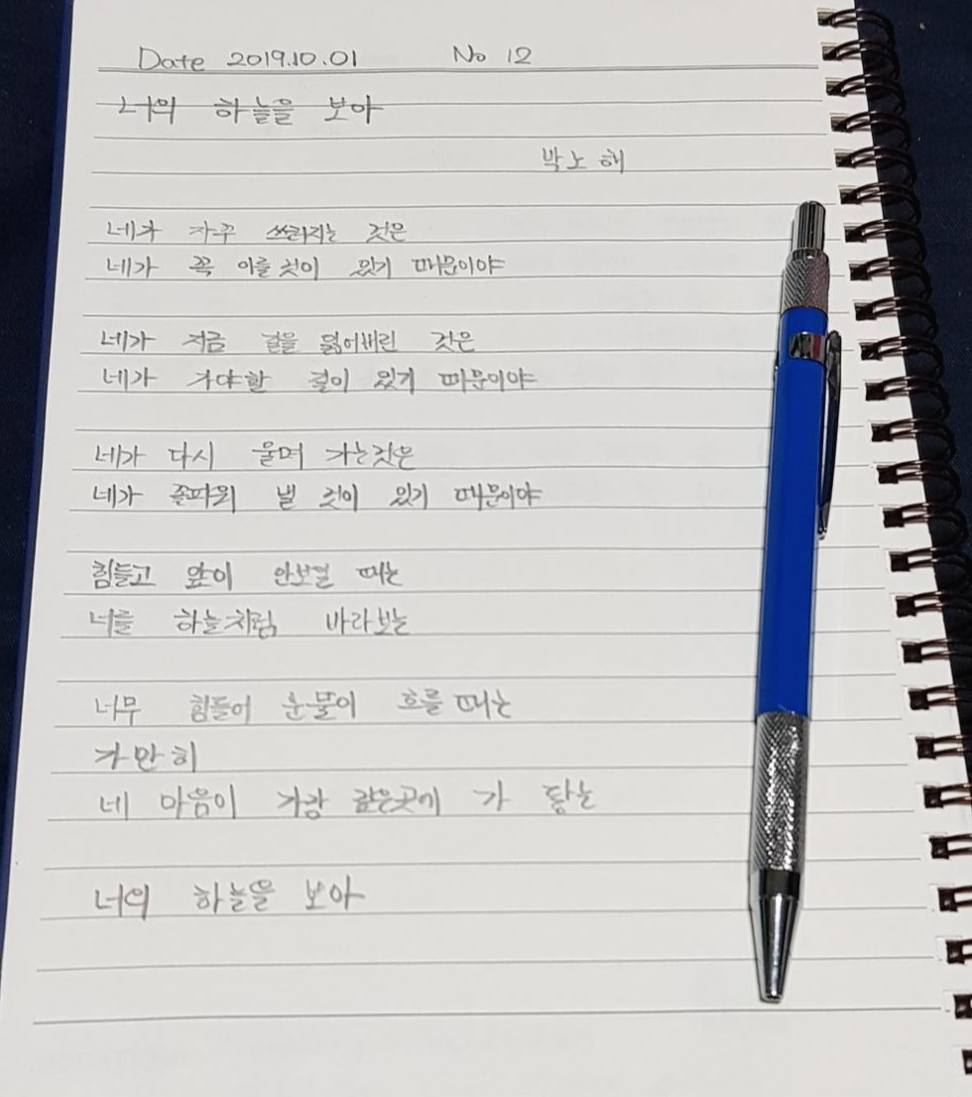 Date 2019.10.01 No 12
너의 하늘을 보아
박노해
네가 자꾸 쓰러지는 것은
네가 꼭 이룰 것이 있기 때문이야
네가 지금 길을 잃어버린 것은
네가 가야할 길이 있기 때문이야
네가 다시 울며 가는것은
네가 꽃피워 낼 것이 있기 때문이야
힘들고 앞이 안보일 때는
너를 하늘처럼 바라보는
너무 힘들어 눈물이 흐를 때는
가만히
네 마음이 가장 깊은곳에 가 닿는
너의 하늘을 보아